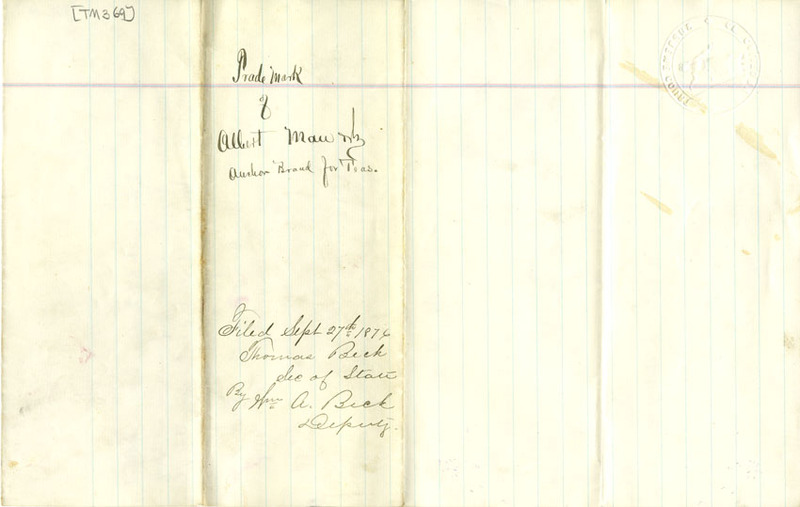 [TM369]
Trade Mark
of
Albert Mau &
Anchor Brand for Teas.
Filed Sept 27th 1876
Thomas Beck
Sec of State
By Wm A. Beck
Deputy.